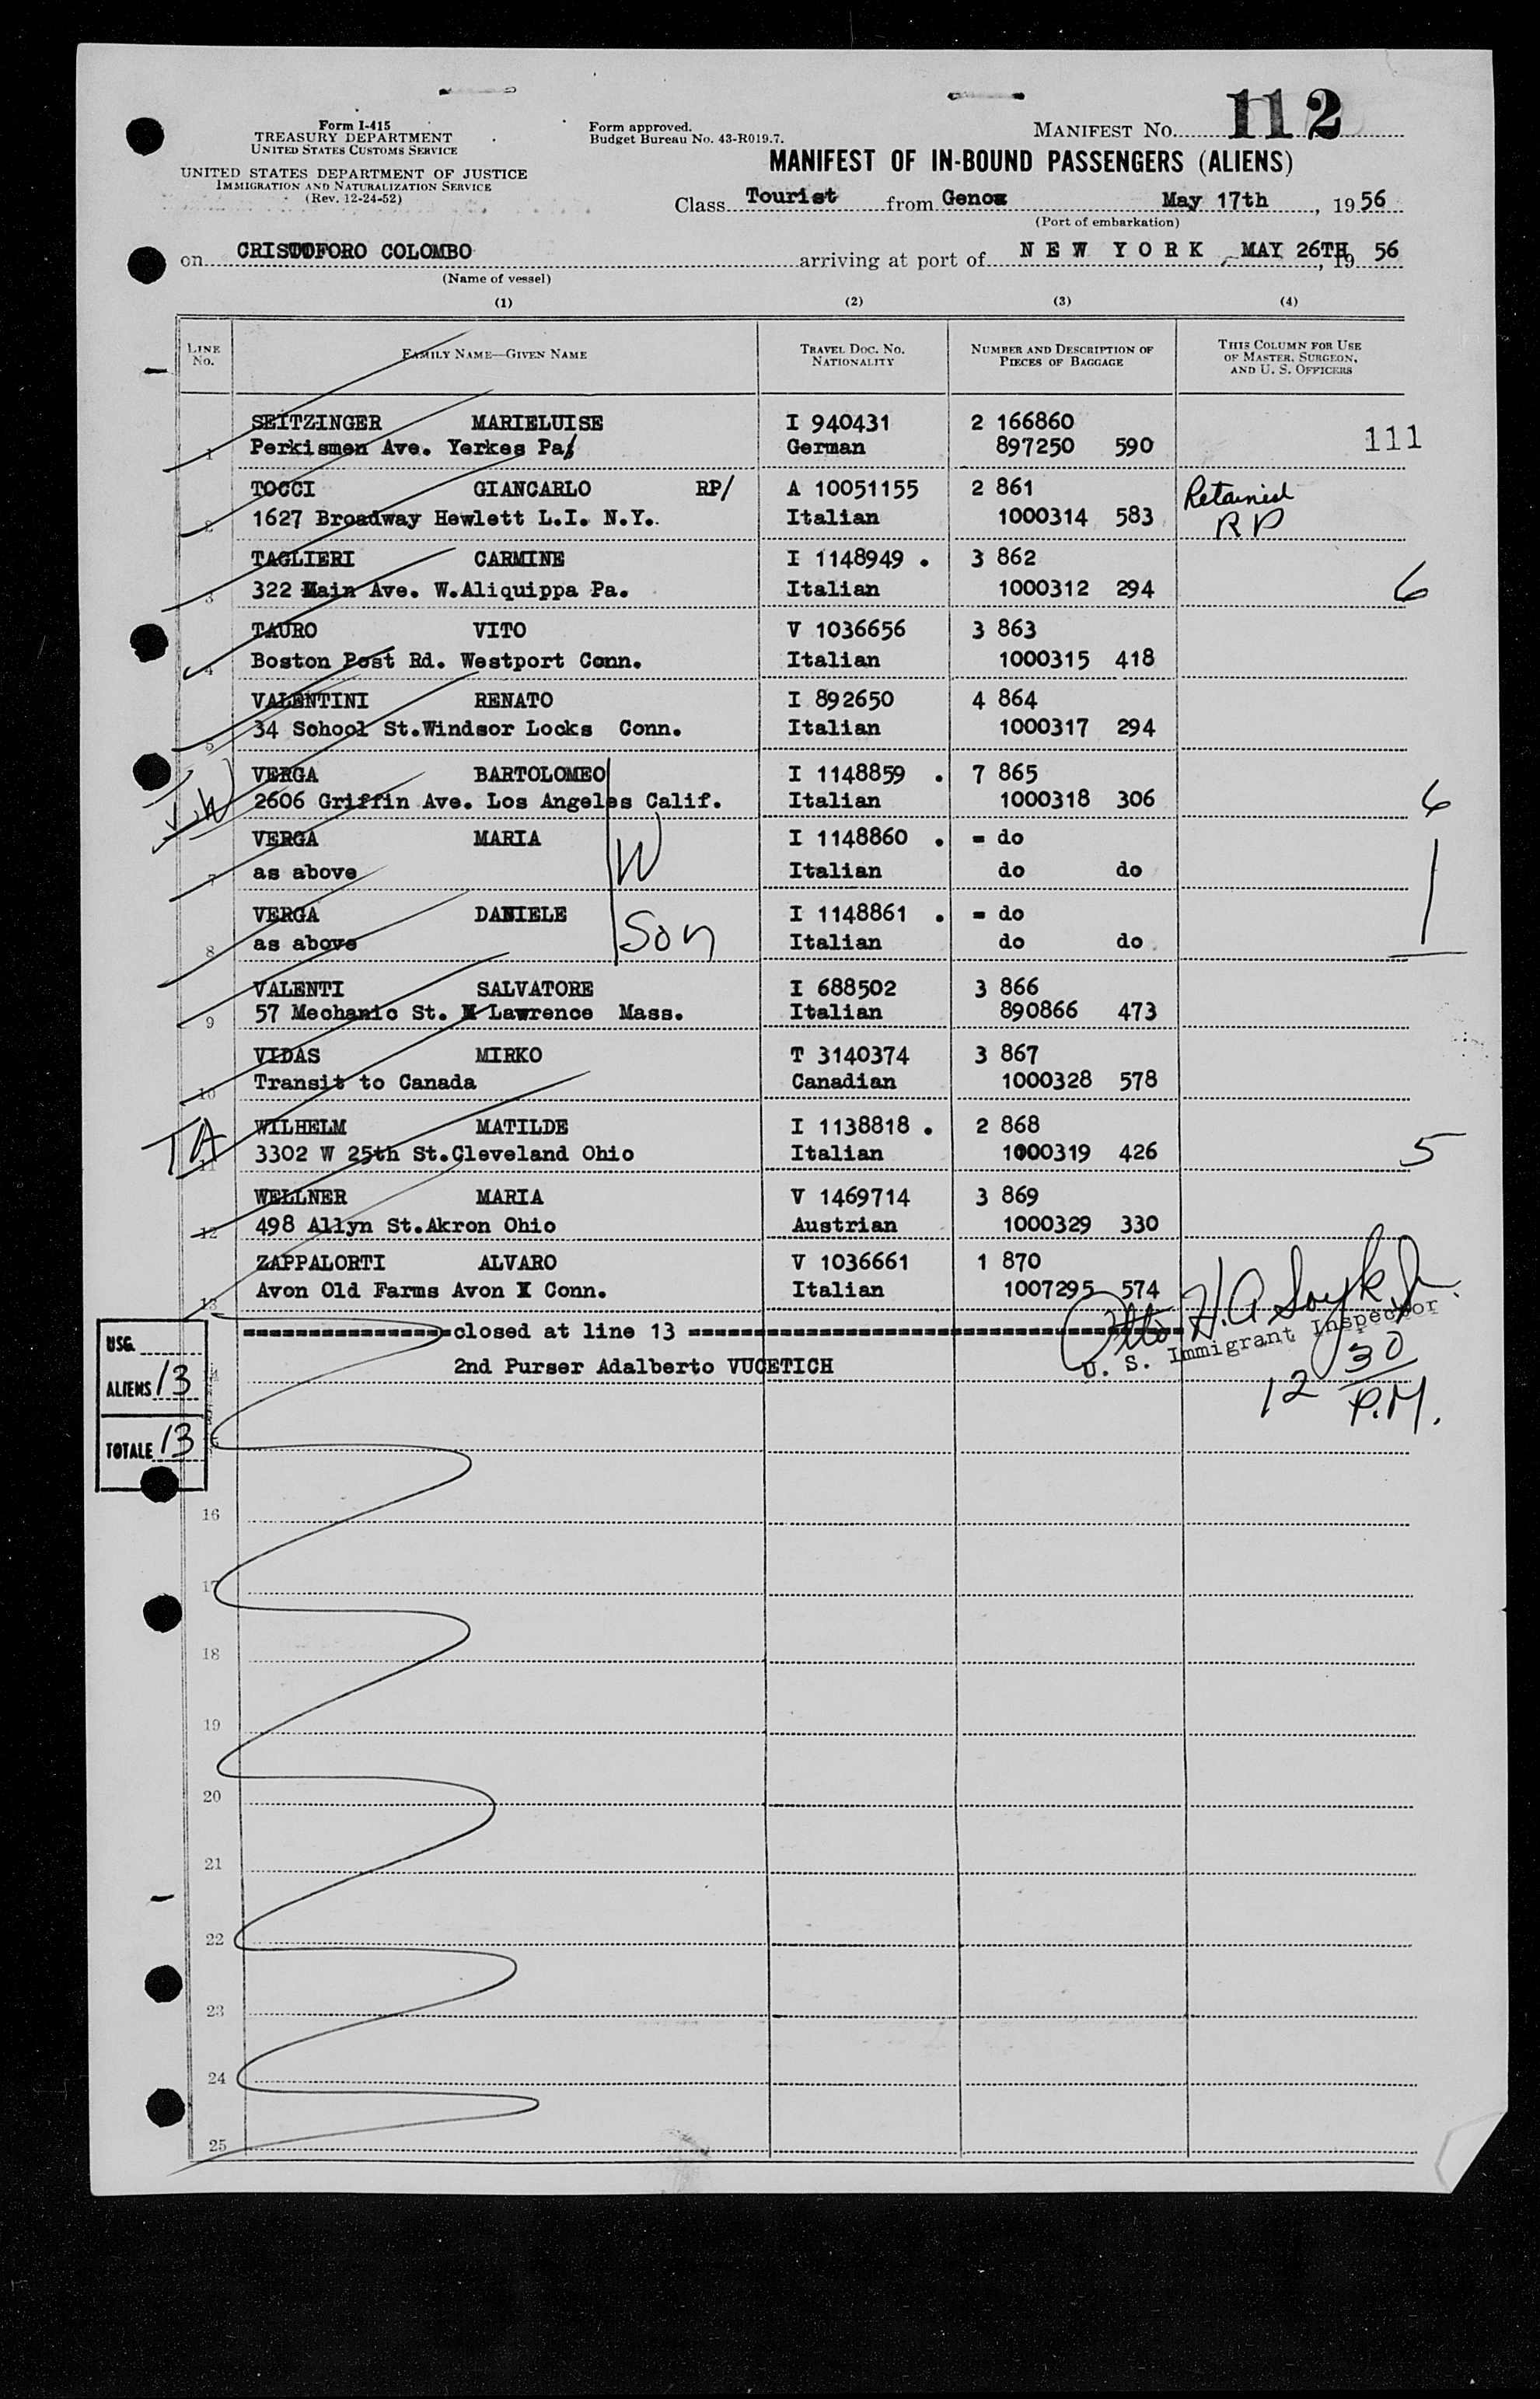 Form I-415
TREASURY DEPARTMENT
UNITED STATES CUSTOMS SERVICE
UNITED STATES DEPARTMENT OF JUSTICE
IMMIGRATION AND NATURALIZATION SERVICE
(Rev. 12-24-52)
Form approved.
Budget Bureau No. 43-R019.7.
MANIFEST No. 112
MANIFEST OF IN-BOUND PASSENGERS (ALIENS)
Class Tourist from Genoa May 17th, 1956
(Port of embarkation)
on CRISTOFORO COLOMBO arriving at port of NEW YORK MAY 26TH, 19 56
(Name of vessel)
(1) (2) (3) (4)
LINE No. FAMILY NAME—GIVEN NAME TRAVEL DOC. NO. NATIONALITY NUMBER AND DESCRIPTION OF PIECES OF BAGGAGE THIS COLUMN FOR USE OF MASTER, SURGEON, AND U. S. OFFICERS
SEITZINGER MARIELUISE I 940431 2 166860
1 Perkismen Ave. Yerkes Pa. German 897250 590 111
TOCCI GIANCARLO RP/ A 10051155 2 861 Retained
2 1627 Broadway Hewlett L.I. N.Y. Italian 1000314 583 RP
TAGLIERI CARMINE I 1148949 . 3 862
3 322 Main Ave. W.Aliquippa Pa. Italian 1000312 294 6
TAURO VITO V 1036656 3 863
4 Boston Post Rd. Westport Conn. Italian 1000315 418
VALENTINI RENATO I 892650 4 864
5 34 School St.Windsor Locks Conn. Italian 1000317 294
VERGA BARTOLOMEO I 1148859 . 7 865
2606 Griffin Ave. Los Angeles Calif. Italian 1000318 306 6
VERGA MARIA W I 1148860 . = do
7 as above Italian do do 1
VERGA DANIELE Son I 1148861 . = do
8 as above Italian do do
VALENTI SALVATORE I 688502 3 866
9 57 Mechanic St. Lawrence Mass. Italian 890866 473
VIDAS MIRKO T 3140374 3 867
10 Transit to Canada Canadian 1000328 578
TA WILHELM MATILDE I 1138818 . 2 868
11 3302 W 25th St.Cleveland Ohio Italian 1000319 426 5
WELLNER MARIA V 1469714 3 869
12 498 Allyn St.Akron Ohio Austrian 1000329 330
ZAPPALORTI ALVARO V 1036661 1 870
13 Avon Old Farms Avon Conn. Italian 1007295 574
closed at line 13
Otto H.A.
U. S. Immigrant Inspector
2nd Purser Adalberto VUCETICH
12 30 P.M.
USG.
ALIENS 13
TOTALE 13
16
17
18
19
20
21
22
23
24
25